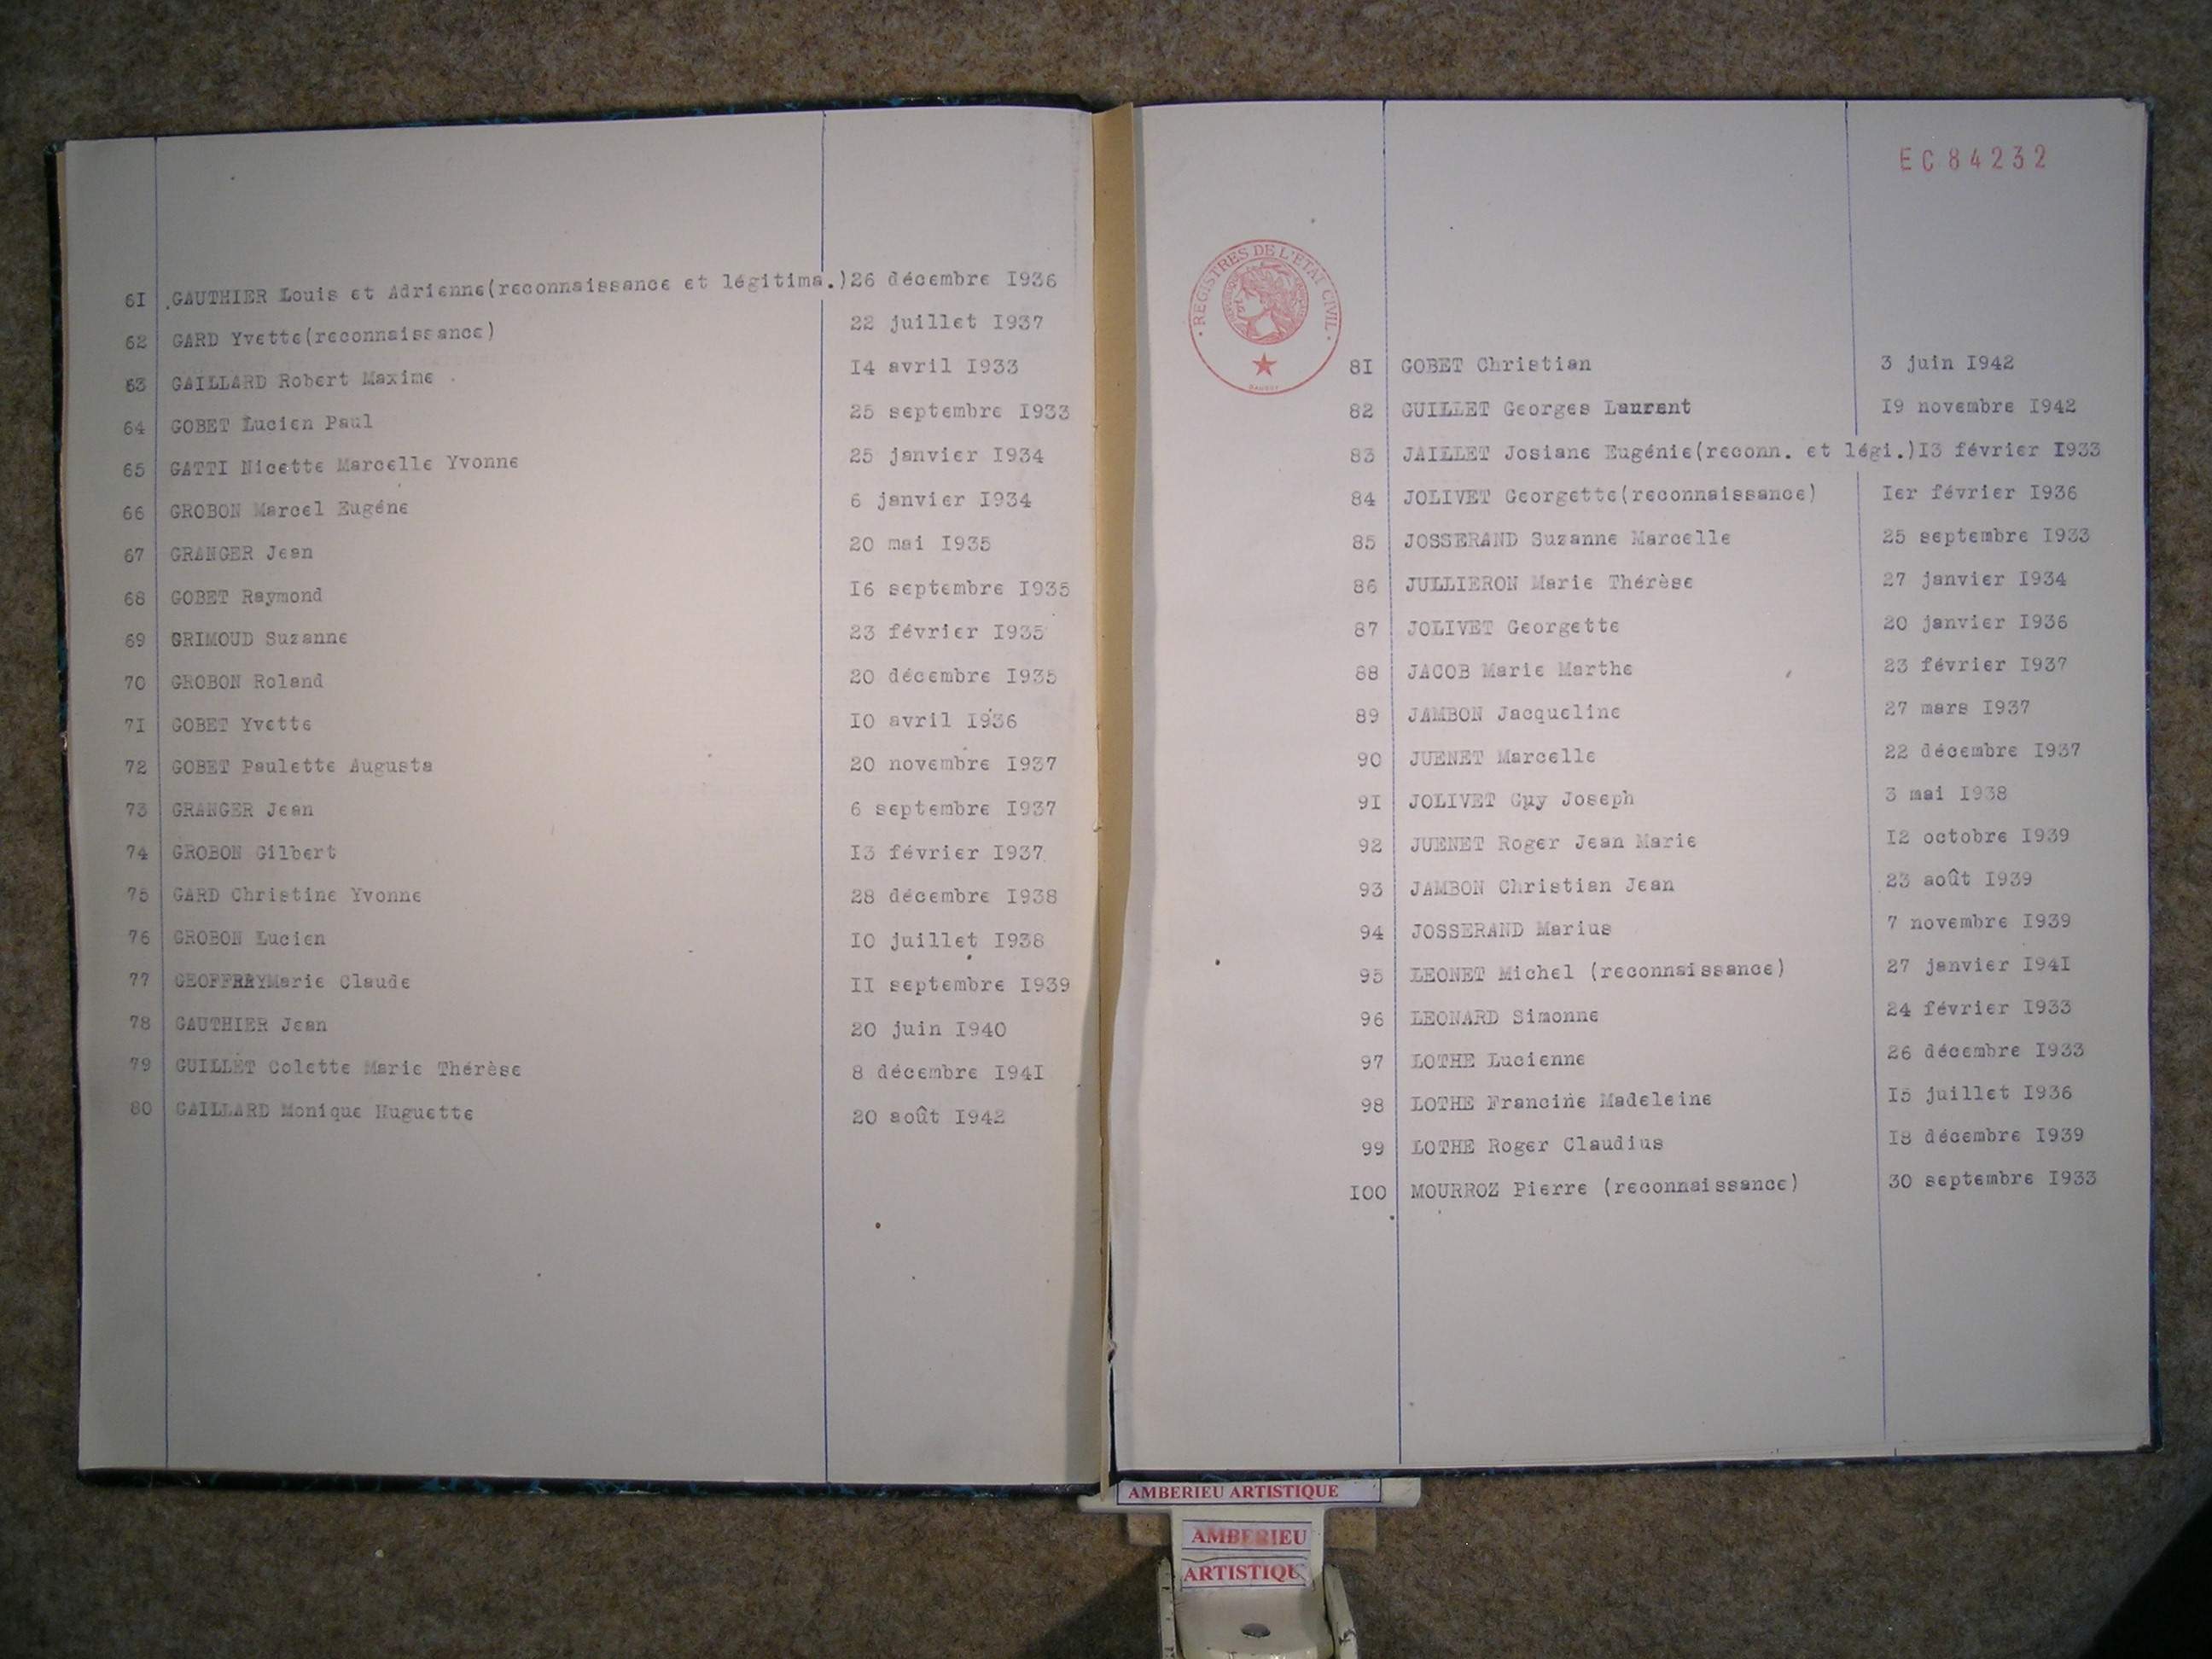 6I GAUTHIER Louis et Adrienne(reconnaissance et légitima.)26 décembre I936
62 GARD Yvette(reconnaissance) 22 juillet I937
63 GAILLARD Robert Maxime 14 avril I933
64 GOBET Lucien Paul 25 septembre I933
65 GATTI Nicette Marcelle Yvonne 25 janvier I934
66 GROBON Marcel Eugéne 6 janvier I934
67 GRANGER Jean 20 mai I935
68 GOBET Raymond I6 septembre I935
69 GRIMOUD Suzanne 23 février I935
70 GROBON Roland 20 décembre I935
7I GOBET Yvette IO avril I936
72 GOBET Paulette Augusta 20 novembre I937
73 GRANGER Jean 6 septembre I937
74 GROBON Gilbert I3 février I937
75 GARD Christine Yvonne 28 décembre I938
76 GROBON Lucien IO juillet I938
77 GEOFFRAYMarie Claude II septembre I939
78 GAUTHIER Jean 20 juin I940
79 GUILLET Colette Marie Thérèse 8 décembre I94I
80 GAILLARD Monique Huguette 20 août I942
EC84232
REGISTRES DE L'ÉTAT CIVIL
8I GOBET Christian 3 juin I942
82 GUILLET Georges Laurent I9 novembre I942
83 JAILLET Josiane Eugénie(reconn. et légi.)I3 février I933
84 JOLIVET Georgette(reconnaissance) Ier février I936
85 JOSSERAND Suzanne Marcelle 25 septembre I933
86 JULLIERON Marie Thérèse 27 janvier I934
87 JOLIVET Georgette 20 janvier I936
88 JACOB Marie Marthe 23 février I937
89 JAMBON Jacqueline 27 mars I937
90 JUENET Marcelle 22 décembre I937
9I JOLIVET Guy Joseph 3 mai I938
92 JUENET Roger Jean Marie I2 octobre I939
93 JAMBON Christian Jean 23 août I939
94 JOSSERAND Marius 7 novembre I939
95 LEONET Michel (reconnaissance) 27 janvier I94I
96 LEONARD Simonne 24 février I933
97 LOTHE Lucienne 26 décembre I933
98 LOTHE Francine Madeleine I5 juillet I936
99 LOTHE Roger Claudius I8 décembre I939
IOO MOURROZ Pierre (reconnaissance) 30 septembre I933
AMBERIEU ARTISTIQUE
AMBERIEU
ARTISTIQUE